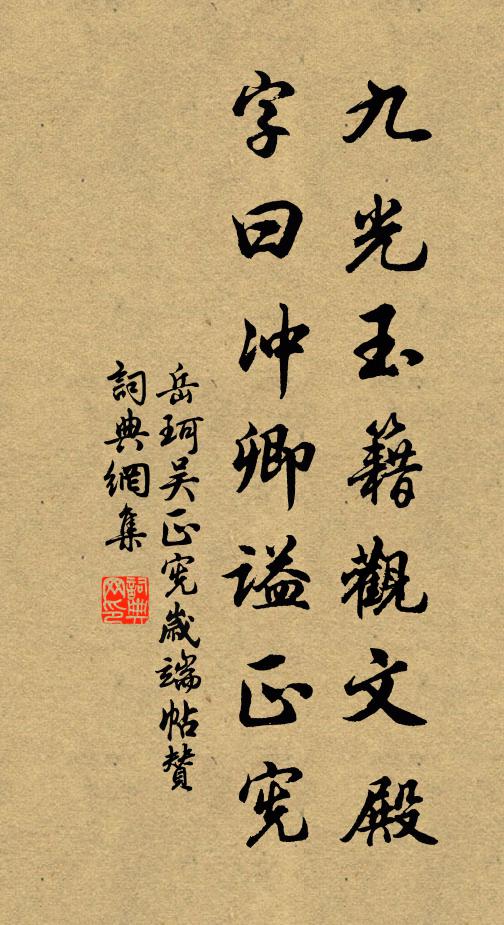 九光玉籍觀文殿
字曰冲卿謚正宪
岳珂吴正宪歲端帖賛
詞典網集
詞典
网印